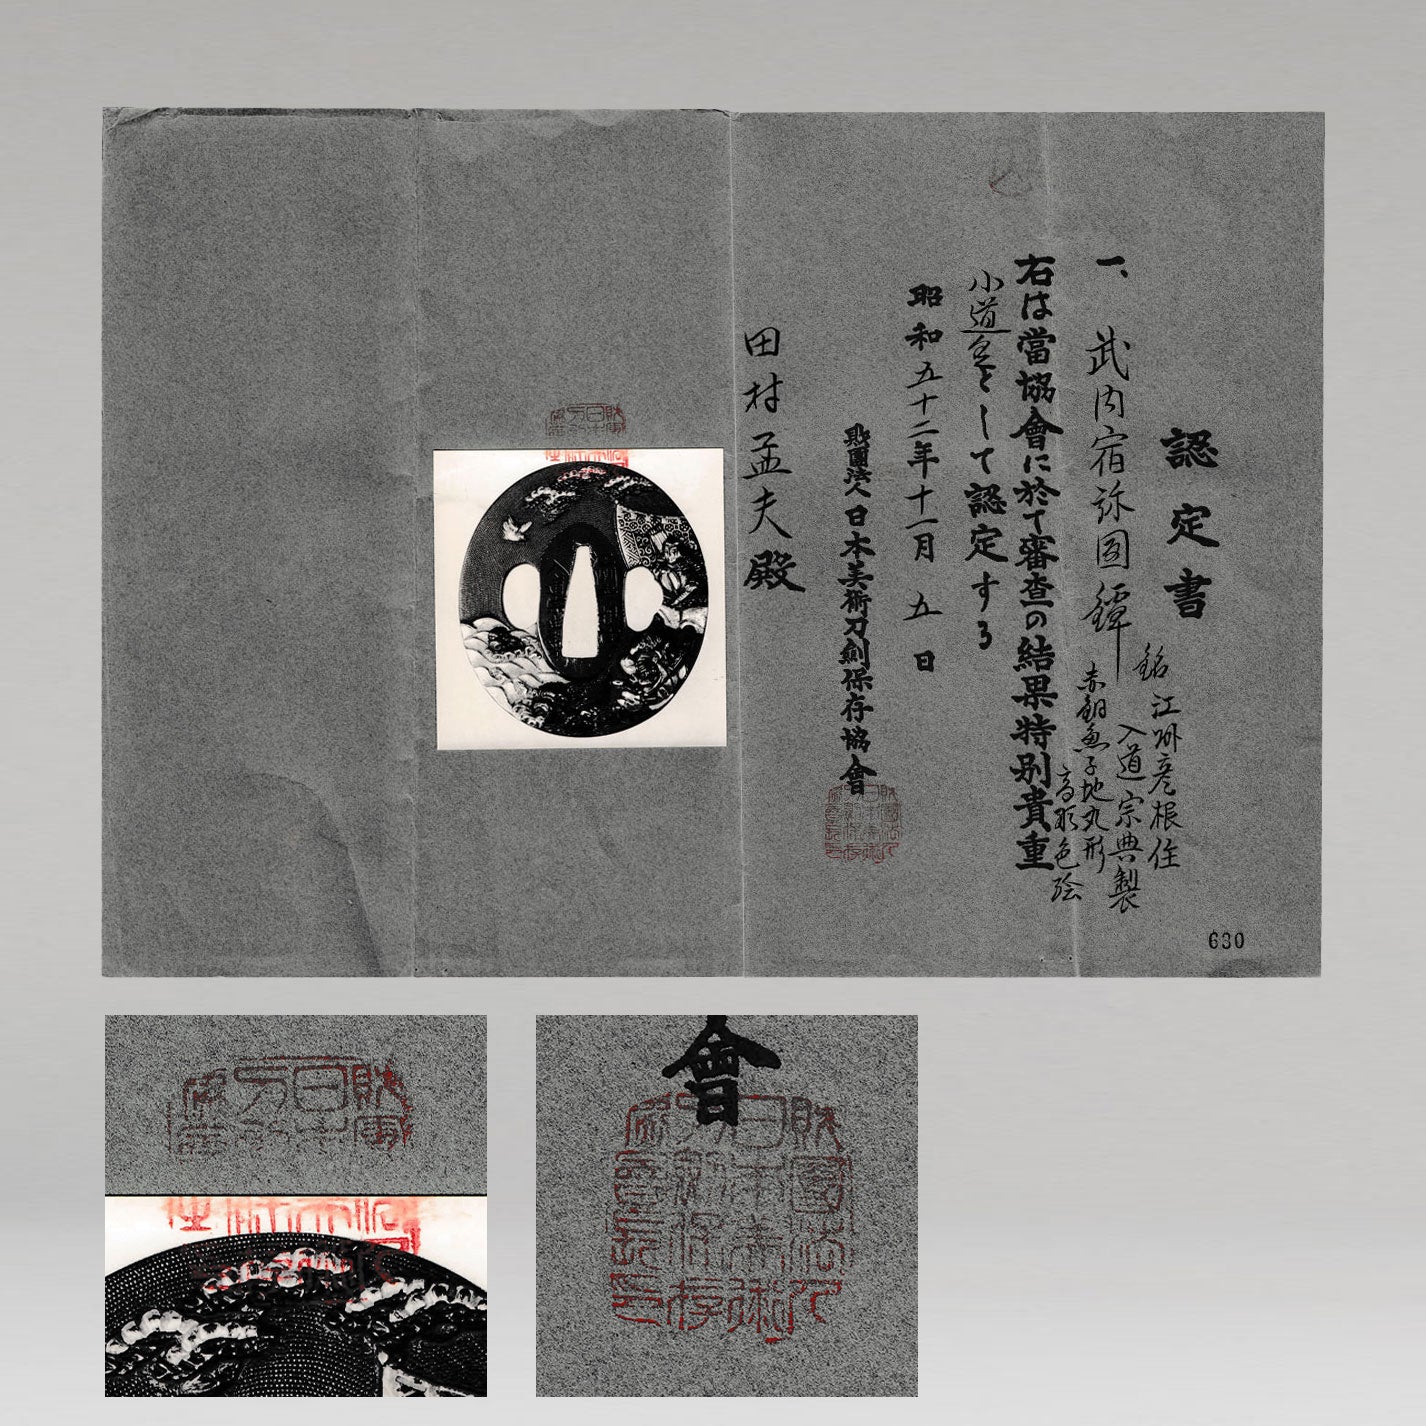 認定書
一、武内宿祢図鐔
銘 江州彦根住
入道宗典製
赤銅魚子地丸形
高彫色絵
右は當協會に於て審査の結果特別貴重
小道具として認定する
昭和五十二年十一月五日
財團法人日本美術刀劍保存協會
田村孟夫殿
630
會